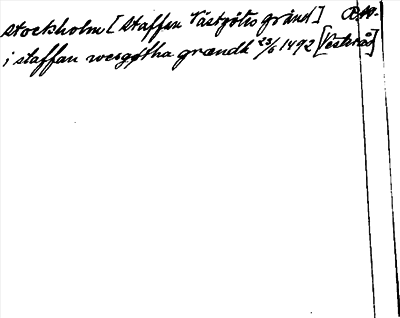 Stockholm [Staffan Västgötes gränd]
i staffan wesgøtha grændh 23/5 1492 [Västerås]